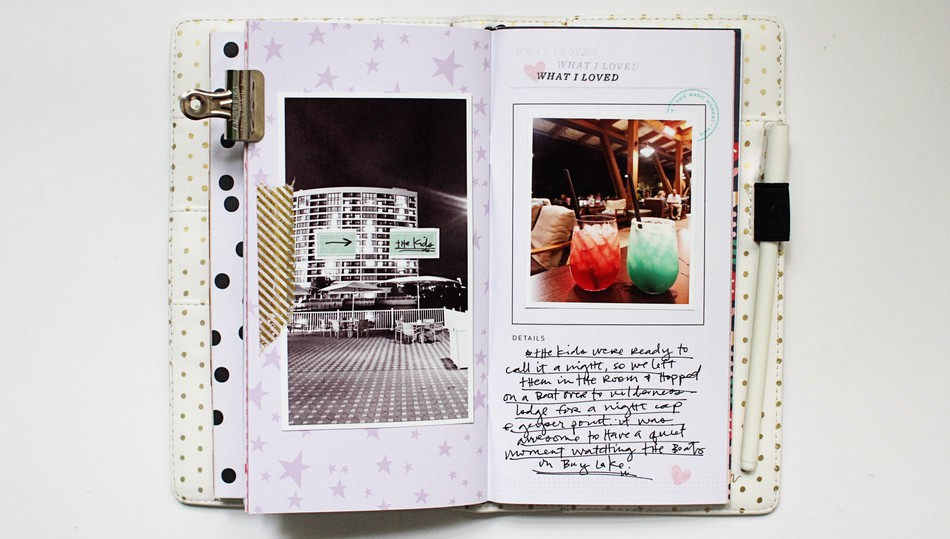 the kids
WHAT I LOVED
WHAT I LOVED
WHAT I LOVED
THIS MAGIC MOMENT
DETAILS
the kids were ready to
call it a night, so we left
them in the room & hopped
on a boat over to wilderness
lodge for a night cap
@ geyser point. it was
awesome to have a quiet
moment watching the boats
on Bay Lake.